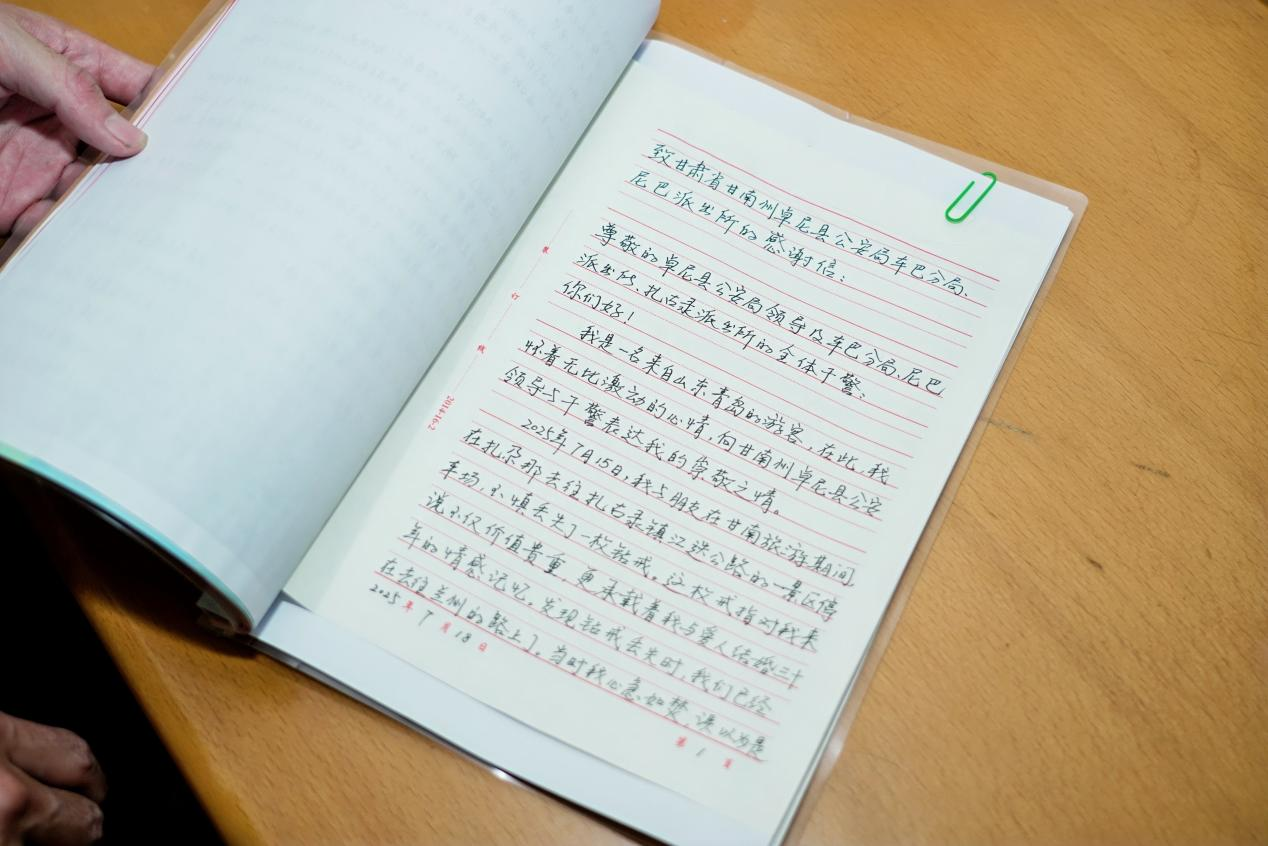 致甘肃省甘南州卓尼县公安局车巴分局、
尼巴派出所的感谢信:
尊敬的卓尼县公安局领导及车巴分局、尼巴
派出所、扎古录派出所的全体干警:
你们好!
我是一名来自山东青岛的游客,在此,我
怀着无比激动的心情,向甘南州卓尼县公安
领导与干警表达我的崇敬之情。
2025年7月15日,我与朋友在甘南旅游期间,
在扎尕那去往扎古录镇江迭公路的一景区停
车场,不慎丢失了一枚钻戒。这枚戒指对我来
说不仅价值贵重,更承载着我与爱人结婚三十
年的情感记忆。发现钻戒丢失时,我们已经
在去往兰州的路上了。当时我心急如焚,误以为是
2025年7月18日
第1页
装订线
2014-16-2